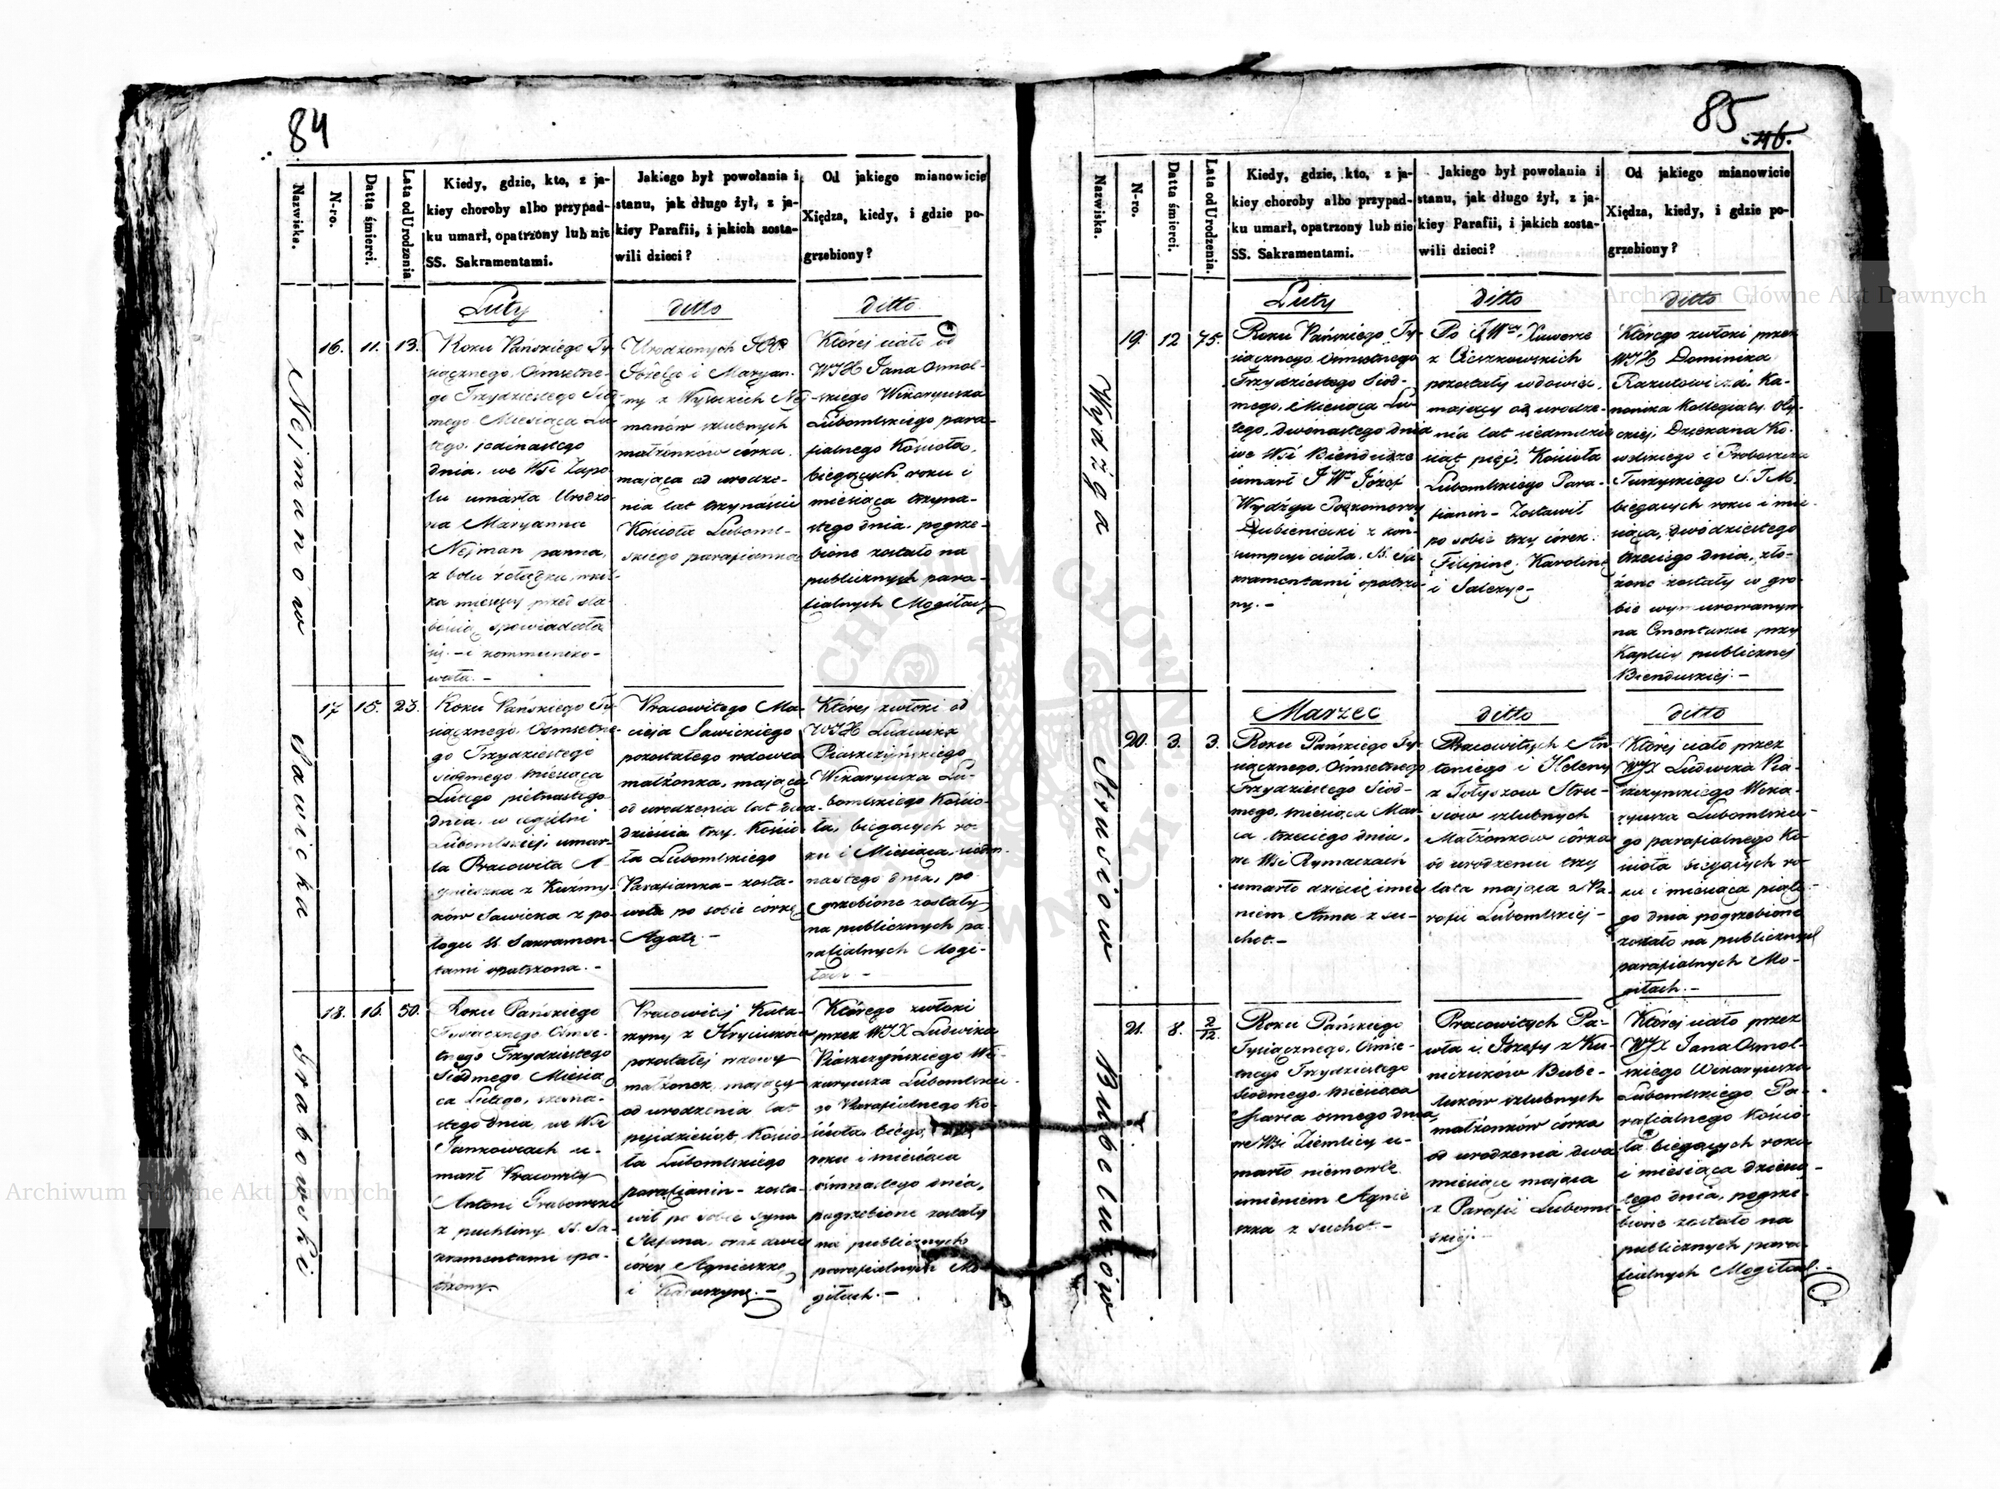 84
Nazwiska.
N-ro.
Datta śmierci.
Lata od Urodzenia.
Kiedy, gdzie, kto, z ja-
kiey choroby albo przypad-
ku umarł, opatrzony lub nie
SS. Sakramentami.
Jakiego był powołania i
stanu, jak długo żył, z ja-
kiey Parafii, i jakich zosta-
wili dzieci?
Od jakiego mianowicie
Xiędza, kiedy, i gdzie po-
grzebiony?
Luty
ditto
ditto
Nejmanów
16.
11.
13.
Roku Pańskiego Ty-
siącznego Ośmsetne-
go Trzydziestego Siód-
mego Miesiąca Lu-
tego, jedinastego
dnia, we Wsi Zapo-
lu umarła Urodzo-
na Maryanna
Nejman panna,
z bolu żołądka, 
ka miesięcy przed sła-
bością spowiadała
się - i kommuniko-
wała. -
Urodzonych
Józefa i Maryan-
ny z Wysockich Nej-
manów szlubnych
małżonków córka
mająca od urodze-
nia lat trzynaście
Kościoła Luboml-
skiego parafianka
Której ciało od
WJX Jana Osmol-
skiego Wikaryusza
Lubomlskiego para-
fialnego Kościoła,
bieżących roku i
miesiąca trzyna-
stego dnia pogrze-
bione zostało na
publicznych para-
fialnych Mogiłach
Sawicka
17
15.
23.
Roku Pańskiego Ty-
siącznego Ośmsetne-
go Trzydziestego
siódmego miesiąca
Lutego pietnastego
dnia, w
Lubomlskiej umar-
ła Pracowita A-
gnieszka z Kuźmy-
ków Sawicka z po-
łogu SS. Sakramen-
tami opatrzona. -
Pracowitego Ma-
cieja Sawickiego
pozostałego wdowca
małżonka, mająca
od urodzenia lat dwa-
dzieścia trzy, Kościo-
ła Lubomlskiego
Parafianka - zosta-
wiła po sobie córkę
Agatę. -
Której zwłoki od
WJX Ludwika
Piaszczyńskiego
Wikaryusza Lu-
bomlskiego Kościo-
ła, bieżących ro-
ku i Miesiąca, siedm-
nastego dnia, po-
grzebione zostały
na publicznych pa-
rafialnych Mogi-
łach -
Grabowski
18.
16.
50.
Roku Pańskiego
Tysiącznego Ośmse-
tnego Trzydziestego
Siódmego Miesią-
ca Lutego, szesna-
stego dnia, we Wsi
Jankowcach u-
marł Pracowity
Antoni Grabowski
z puchliny SS. Sa-
kramentami opa-
trzony
Pracowitej Kata-
rzyny z Hryciuków
pozostałej wdowy
małżonek, mający
od urodzenia lat
pięćdziesiąt, Kościo-
ła Lubomlskiego
parafianin - zosta-
wił po sobie syna
Stefana, oraz dwie
córki Agnieszkę
i Katarzynę. -
Którego zwłoki
przez WJX Ludwika
Piaszczyńskiego Wi-
karyusza Lubomlskie-
go Parafialnego Ko-
ścioła, bieżą
roku i miesiąca
ośmnastego dnia,
pogrzebione zostały
na publicznych
parafialnych Mo-
giłach. -
85
46.
Nazwiska.
N-ro.
Datta śmierci.
Lata od Urodzenia.
Kiedy, gdzie, kto, z ja-
kiey choroby albo przypad-
ku umarł, opatrzony lub nie
SS. Sakramentami.
Jakiego był powołania i
stanu, jak długo żył, z ja-
kiey Parafii, i jakich zosta-
wili dzieci?
Od jakiego mianowicie
Xiędza, kiedy, i gdzie po-
grzebiony?
Luty
ditto
ditto
Wydżga
19.
12
75.
Roku Pańskiego Ty-
siącznego Ośmsetnego
Trzydziestego Siód-
mego, Miesiąca Lu-
tego, dwónastego dnia
we Wsi Bienduże
umarł JW Józef
Wydżga Podkomorzy
Lubieński z kon-
sumpcyi ciała, SS. Sa-
kramentami opatrzo-
ny. -
Po JW Xawerze
z Cieszkowskich
pozostały wdowiec,
mający od urodze-
nia lat siedmdzie-
siąt pięć, Kościoła
Lubomlskiego Para-
fianin - Zostawił
po sobie trzy córek
Filipinę, Karolinę
i Salezyę -
Którego zwłoki przez
WJX Dominika
Razutowicza Ka-
nonika Kollegiaty Oły-
ckiej, Dziekana Ko-
welskiego i Proboszcza
Turzyskiego S. T. M.
bieżących roku i mie-
siąca, dwódziestego
trzeciego dnia, zło-
żone zostały w gro-
bie wymurowanym
na Cmentarzu przy
Kaplicy publicznej
Bienduskiej. -
Marzec
ditto
ditto
Strusiów
20.
3.
3.
Roku Pańskiego Ty-
siącznego, Ośmsetnego
Trzydziestego Siód-
mego, miesiąca Mar-
ca, trzeciego dnia,
we Wsi Rymaczach
umarło dziecię imie-
niem Anna z su-
chot. -
Pracowitych An-
toniego i Heleny
z Tołyszów Stru-
siów szlubnych
Małżonków córka
od urodzenia trzy
lata mająca z Pa-
rafii Lubomlskiej -
Której ciało przez
WJX Ludwika Pia-
szczyńskiego Wika-
ryusza Lubomlskie-
go parafialnego Ko-
ścioła bieżących ro-
ku i miesiąca piąte-
go dnia pogrzebione
zostało na publicznych
parafialnych Mo-
giłach. -
Bubeluzów
21.
8.
2/12.
Roku Pańskiego
Tysiącznego, Ośmse-
tnego Trzydziestego
Siódmego, miesiąca
Marca ósmego dnia,
we Wsi Ziemlicy u-
marło niemowle
imieniem Agnie-
szka z suchot. -
Pracowitych Pa-
wła i Józefy z Ku-
niczuków Bube-
luzów szlubnych
małżonków córka
od urodzenia dwa
miesiące mająca
z Parafii Luboml-
skiej. -
Której ciało przez
WJX Jana Osmol-
skiego Wikaryusza
Lubomlskiego Pa-
rafialnego Kościo-
ła bieżących roku
i miesiąca dziewią-
tego dnia, pogrze-
bione zostało na
publicznych para-
fialnych Mogiłach. -
Archiwum Główne Akt Dawnych
Archiwum Główne Akt Dawnych